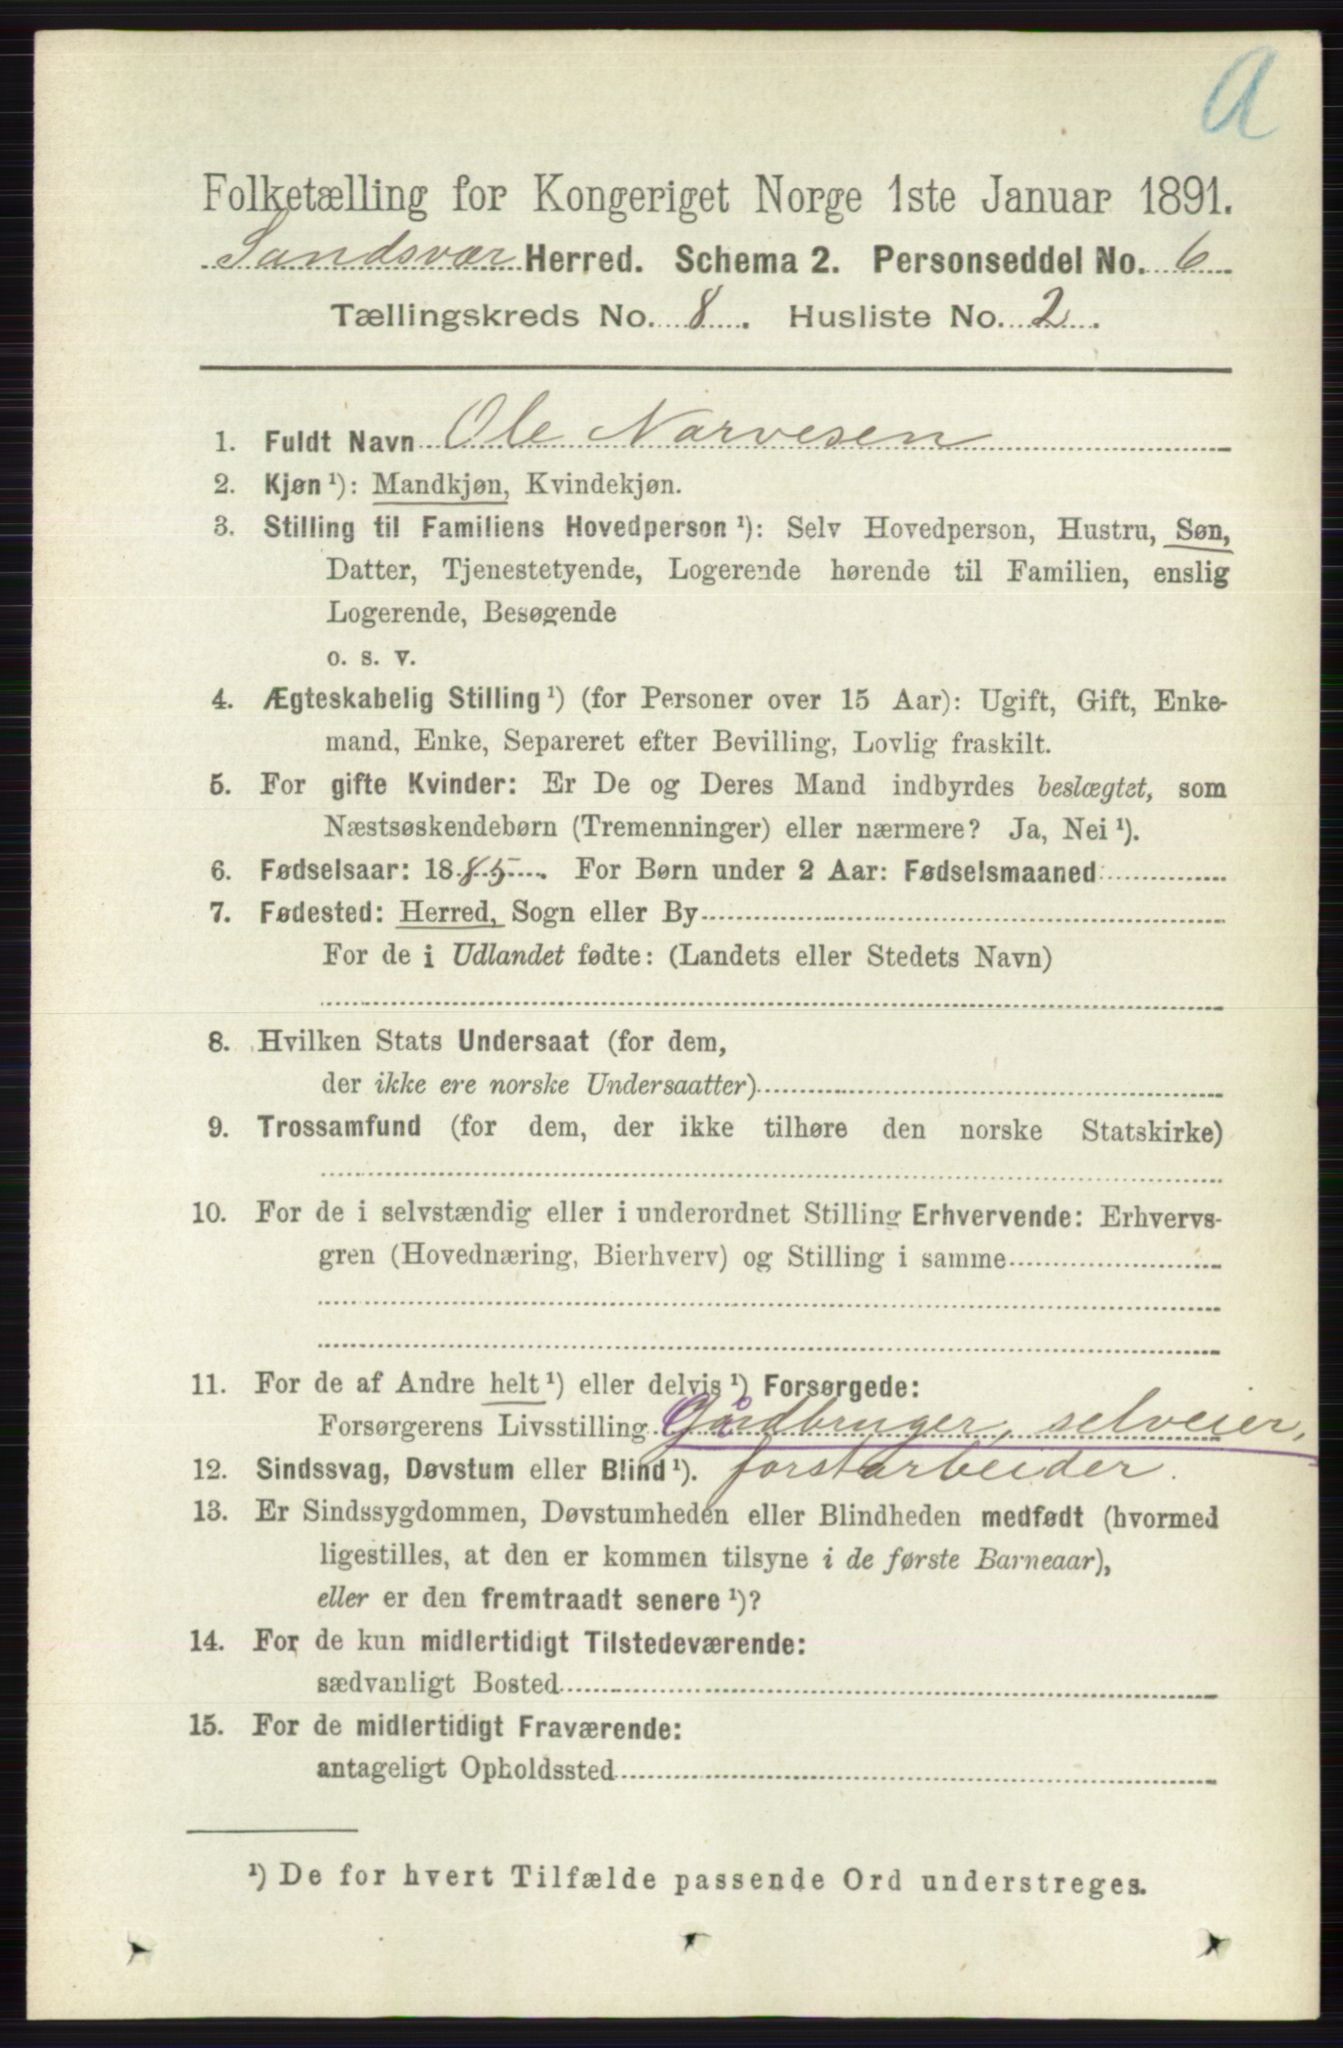 A
Folketælling for Kongeriget Norge 1ste Januar 1891.
Sandsvær Herred. Schema 2. Personseddel No. 6
Tællingskreds No. 8. Husliste No. 2.
1. Fuldt Navn Ole Narvesen
2. Kjøn ¹): Mandkjøn, Kvindekjøn.
3. Stilling til Familiens Hovedperson ¹): Selv Hovedperson, Hustru, Søn,
Datter, Tjenestetyende, Logerende hørende til Familien, enslig
Logerende, Besøgende
o. s. v.
4. Ægteskabelig Stilling ¹) (for Personer over 15 Aar): Ugift, Gift, Enke-
mand, Enke, Separeret efter Bevilling, Lovlig fraskilt.
5. For gifte Kvinder: Er De og Deres Mand indbyrdes beslægtet, som
Næstsøskendebørn (Tremenninger) eller nærmere? Ja, Nei ¹).
6. Fødselsaar: 1885. For Børn under 2 Aar: Fødselsmaaned
7. Fødested: Herred, Sogn eller By
For de i Udlandet fødte: (Landets eller Stedets Navn)
8. Hvilken Stats Undersaat (for dem,
der ikke ere norske Undersaatter)
9. Trossamfund (for dem, der ikke tilhøre den norske Statskirke)
10. For de i selvstændig eller i underordnet Stilling Erhvervende: Erhvervs-
gren (Hovednæring, Bierhverv) og Stilling i samme
11. For de af Andre helt ¹) eller delvis ¹) Forsørgede:
Forsørgerens Livsstilling Gårdbruger, selveier,
12. Sindssvag, Døvstum eller Blind ¹). forstarbeider.
13. Er Sindssygdommen, Døvstumheden eller Blindheden medfødt (hvormed
ligestilles, at den er kommen tilsyne i de første Barneaar),
eller er den fremtraadt senere ¹)?
14. For de kun midlertidigt Tilstedeværende:
sædvanligt Bosted
15. For de midlertidigt Fraværende:
antageligt Opholdssted
¹) De for hvert Tilfælde passende Ord understreges.